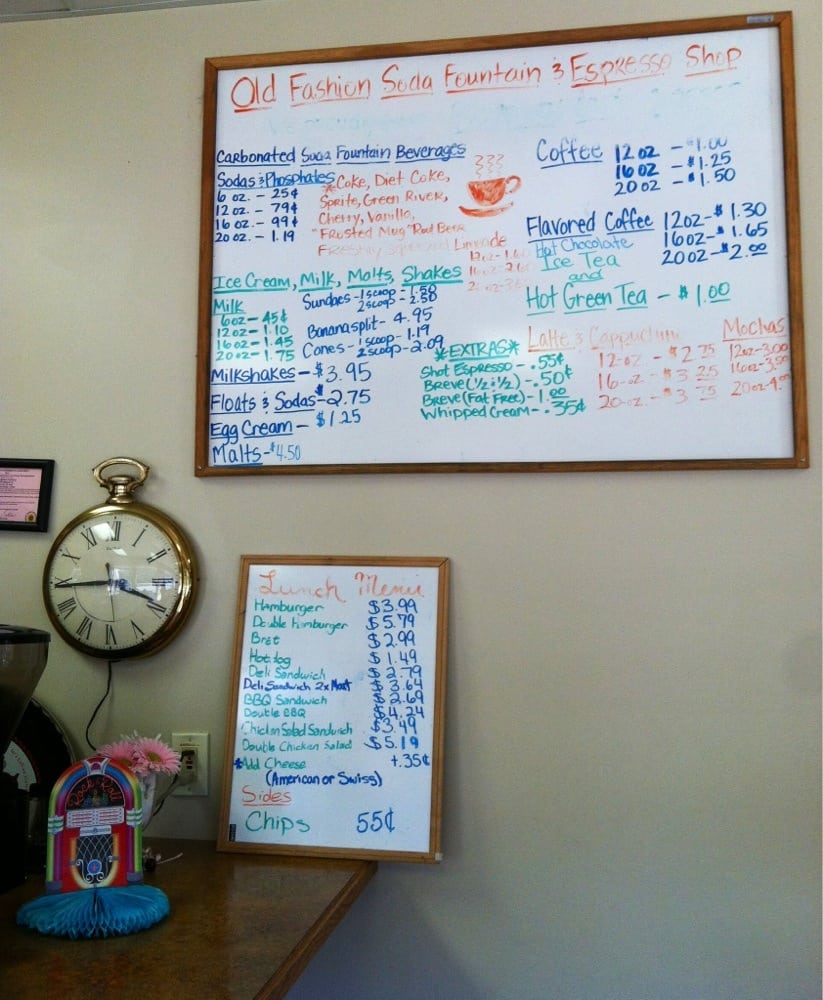 Old Fashion Soda Fountain & Espresso Shop
Carbonated Soda Fountain Beverages
Sodas & Phosphates
6 oz. - 25¢
12 oz. - 79¢
16 oz. - 99¢
20 oz. - 1.19
*Coke, Diet Coke,
Sprite, Green River,
Cherry, Vanilla,
"Frosted Mug" Root Beer
Freshly Squeezed Limeade
Ice Cream, Milk, Malts, Shakes
Milk
6oz - 45¢
12oz - 1.10
16oz - 1.45
20oz - 1.75
Sundaes - 1 scoop - 1.50
2 scoop - 2.50
Bananasplit - 4.95
Cones - 1 scoop - 1.19
2 scoop - 2.09
Milkshakes - $3.95
Floats & Sodas - $2.75
Egg Cream - $1.25
Malts - $4.50
Coffee 12 oz - $1.00
16 oz - $1.25
20 oz - $1.50
Flavored Coffee 12oz - $1.30
Hot Chocolate 16oz - $1.65
Ice Tea 20oz - $2.00
and
Hot Green Tea - $1.00
*EXTRAS*
Shot Espresso - .55¢
Breve (½ & ½) - .50¢
Breve (Fat Free) - 1.00
Whipped Cream - .35¢
Latte & Cappuccino
12-oz. - $2.75
16-oz. - $3.25
20-oz. - $3.75
Mochas
12oz - 3.00
16oz - 3.50
20oz - 4.00
Lunch Menu
Hamburger $3.99
Double Hamburger $5.79
Brat $2.99
Hotdog $1.49
Deli Sandwich $2.79
Deli Sandwich 2x Meat $3.64
BBQ Sandwich $2.69
Double BBQ $4.24
Chicken Salad Sandwich $3.49
Double Chicken Salad $5.19
*Add Cheese +.35¢
(American or Swiss)
Sides
Chips 55¢
Rock & Roll